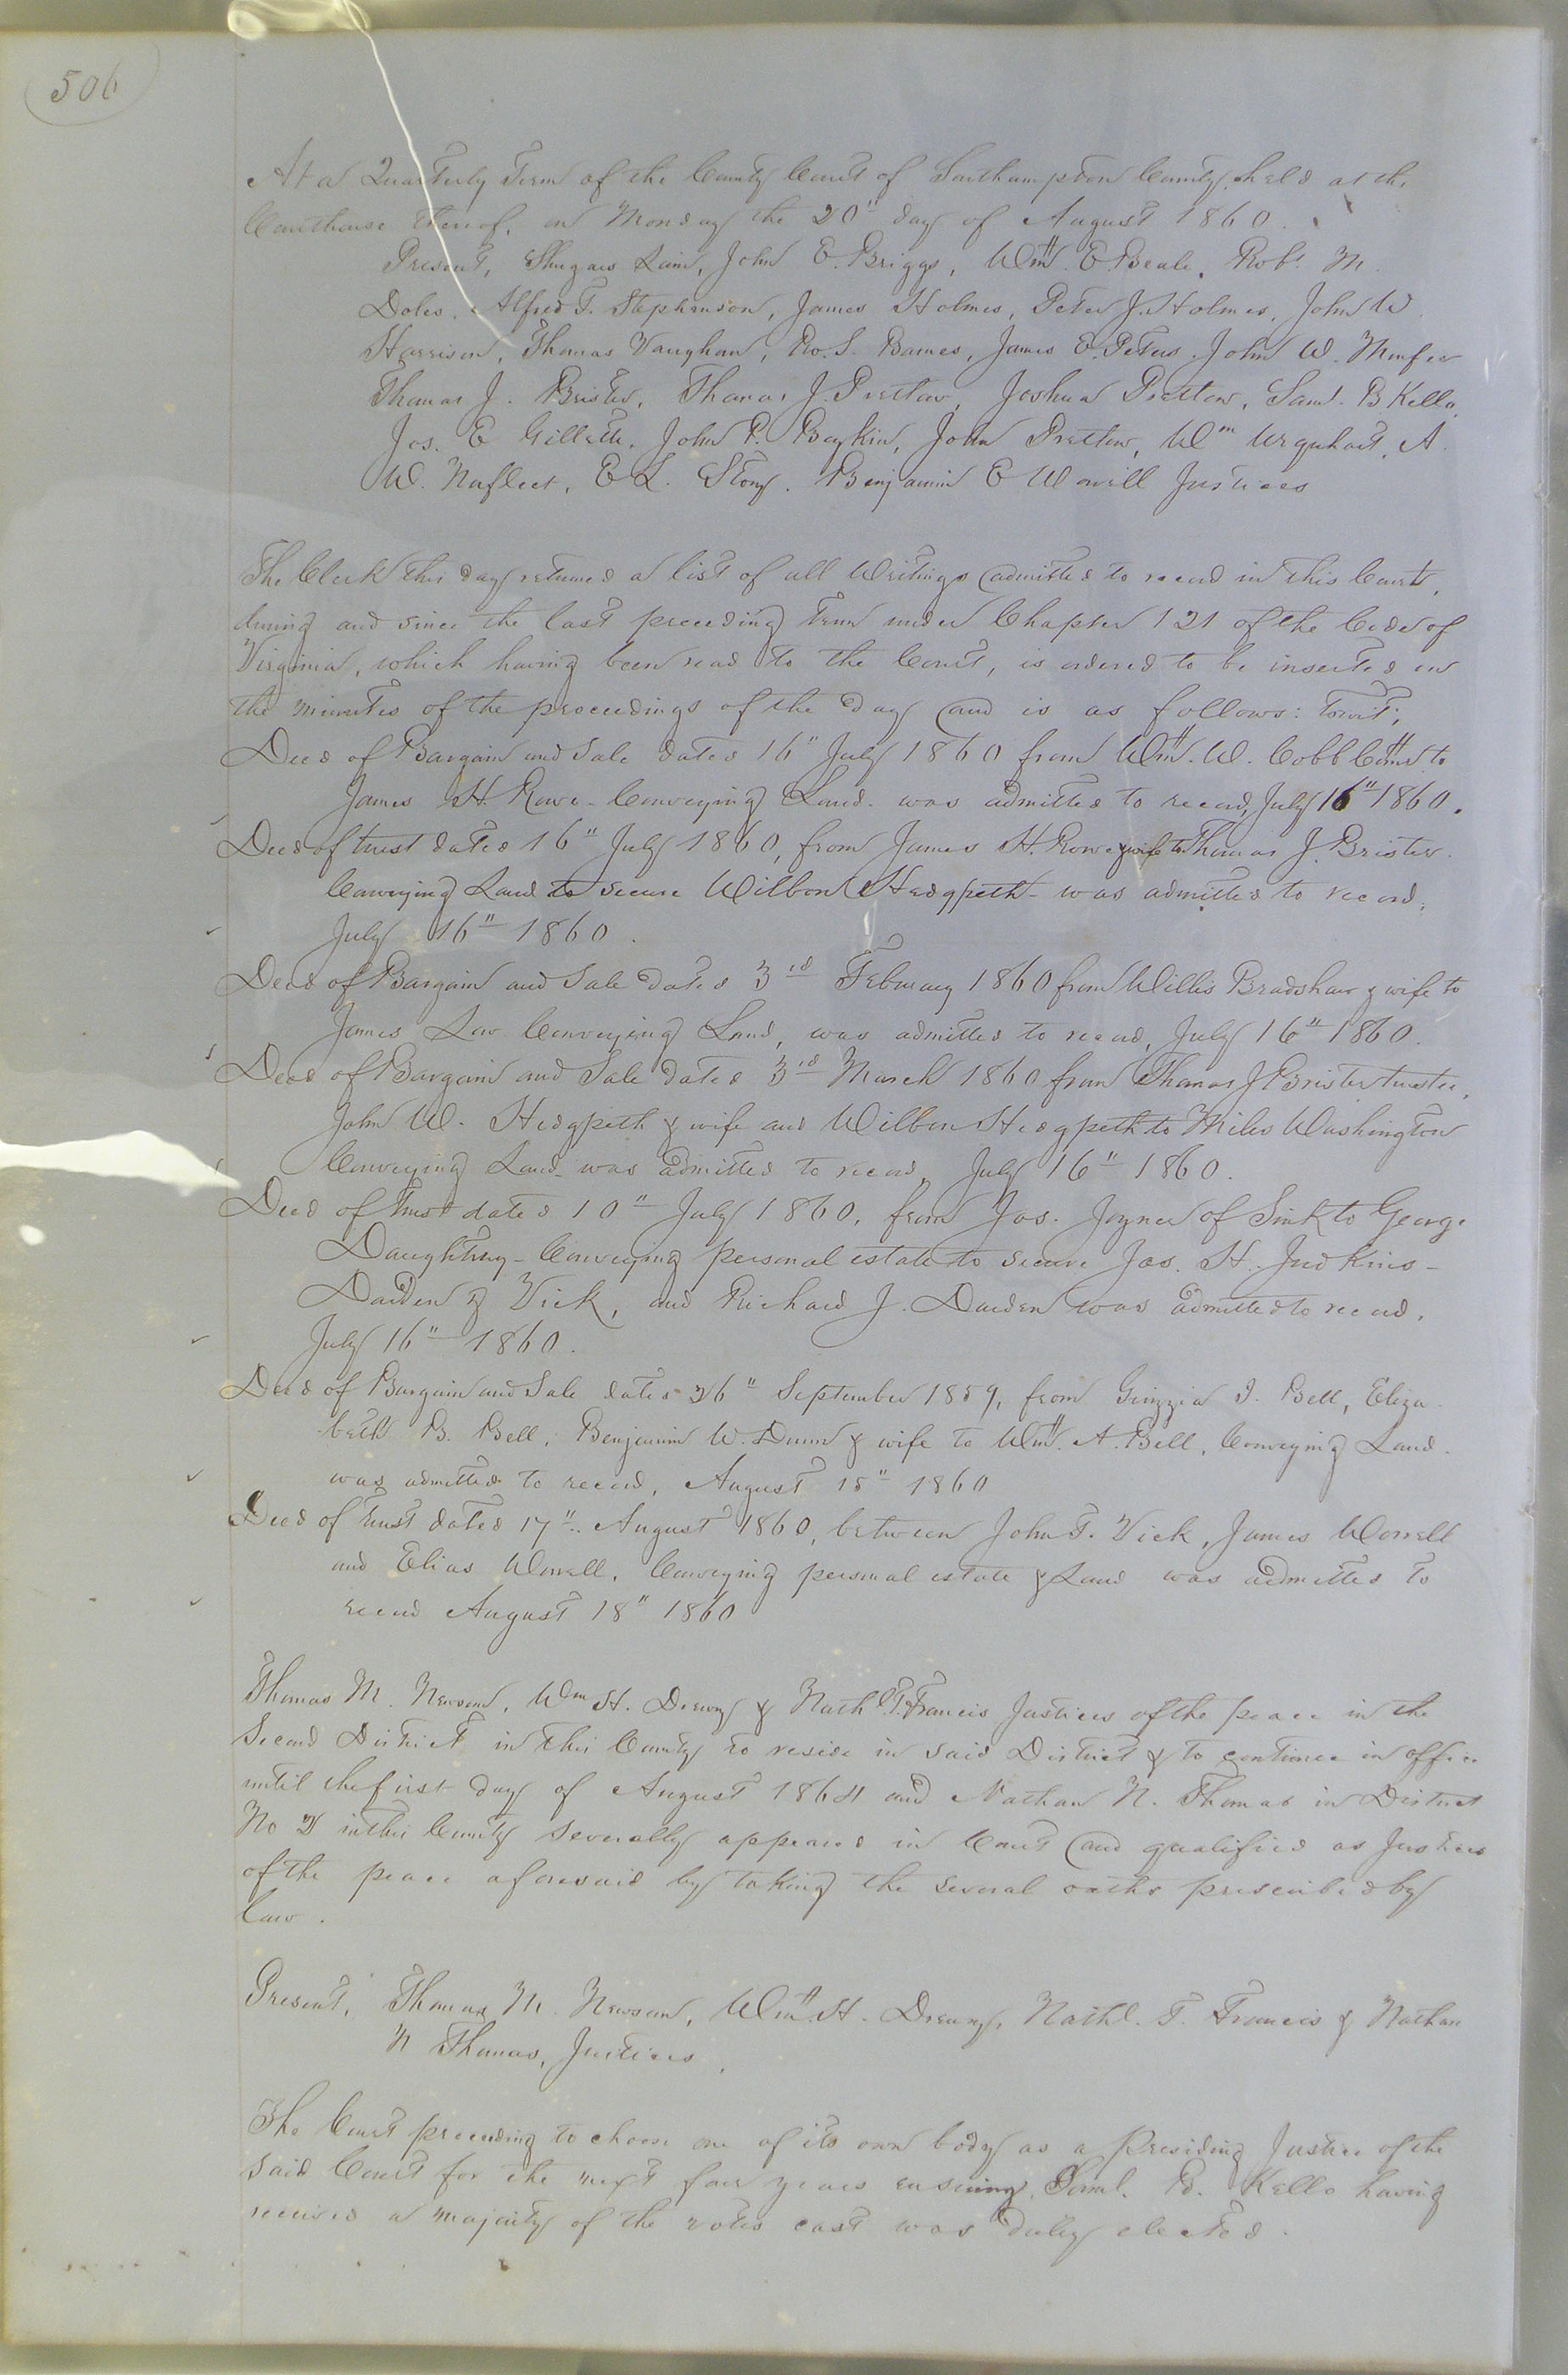 506
At a Quarterly Term of the County Court of Southampton County, held at the
Courthouse thereof, on Monday the 20" day of August 1860.
Present, Shugars Lain, John E. Briggs, Wm. E. Beale, Robt. M.
Doles, Alfred T. Stephenson, James Holmes, Peter J. Holmes, John W.
Harrison, Thomas Vaughan, Ro. S. Barnes, James E. Peters, John W. Murfee
Thomas J. Brister, Thomas J. Pretlow, Joshua Pretlow, Saml. B Kello,
Jos. E Gillette, John P. Boykin, John Pretlow, Wm Urquhart, A.
W. Norfleet, E L. Story. Benjamin E Worrill Justices
The Clerk this day returned a list of all Writings admitted to record in this Court,
during and since the last preceeding term under Chapter 121 of the Code of
Virginia, which having been read to the Court, is ordered to be inserted in
the minutes of the proceedings of the day and is as follows: Towit;
Deed of Bargain and Sale dated 16" July 1860 from Wm. W. Cobb Comr to
James H. Rowe - Conveying Land - was admitted to record, July 16" 1860.
Deed of trust dated 16" July 1860, from James H. Rowe & wife to Thomas J. Brister.
Conveying Land to secure Wilbon Hedgpeth - was admitted to record,
July 16" 1860.
Deed of Bargain and Sale dated 3rd February 1860 from Willis Bradshaw & wife to
James Low Conveying Land, was admitted to record, July 16" 1860.
Deed of Bargain and Sale dated 3rd March 1860 from Thomas J Brister trustee,
John W. Hedgpeth & wife and Wilbon Hedgpeth to Miles Washington
Conveying Land - was admitted to record, July 16" 1860.
Deed of Trust dated 10" July 1860, from Jas. Joyner of Sink to George
Daughtrey - Conveying personal estate to secure Jas. H. Judkins -
Darden & Vick, and Richard J. Darden was admitted to record,
July 16" 1860.
Deed of Bargain and Sale dated 26" September 1859, from Grizzia I. Bell, Eliza-
beth B. Bell, Benjamin W. Dunn & wife to Wm. A. Bell, Conveying Land -
was admitted to record, August 15" 1860
Deed of Trust dated 17" August 1860, between John T. Vick, James Worrell
and Elias Worrell, Conveying personal estate & Land was admitted to
record August 18" 1860
Thomas M. Newsom, Wm H. Drewry & Nathl T. Francis Justices of the peace in the
Second District in this County to reside in said District & to continue in office
until the first day of August 1864 and Nathan N. Thomas in District
No in this County severally appeared in Court and qualified as Justices
of the peace aforesaid by taking the several oaths prescribed by
law.
Present, Thomas M. Newsom, Wm. H. Drewry, Nathl. T. Francis & Nathan
N Thomas, Justices.
The Court proceeding to choose one of its own body as a Presiding Justice of the
said Court for the next four years ensuing, Saml. B. Kello having
received a majority of the votes cast was duly elected.